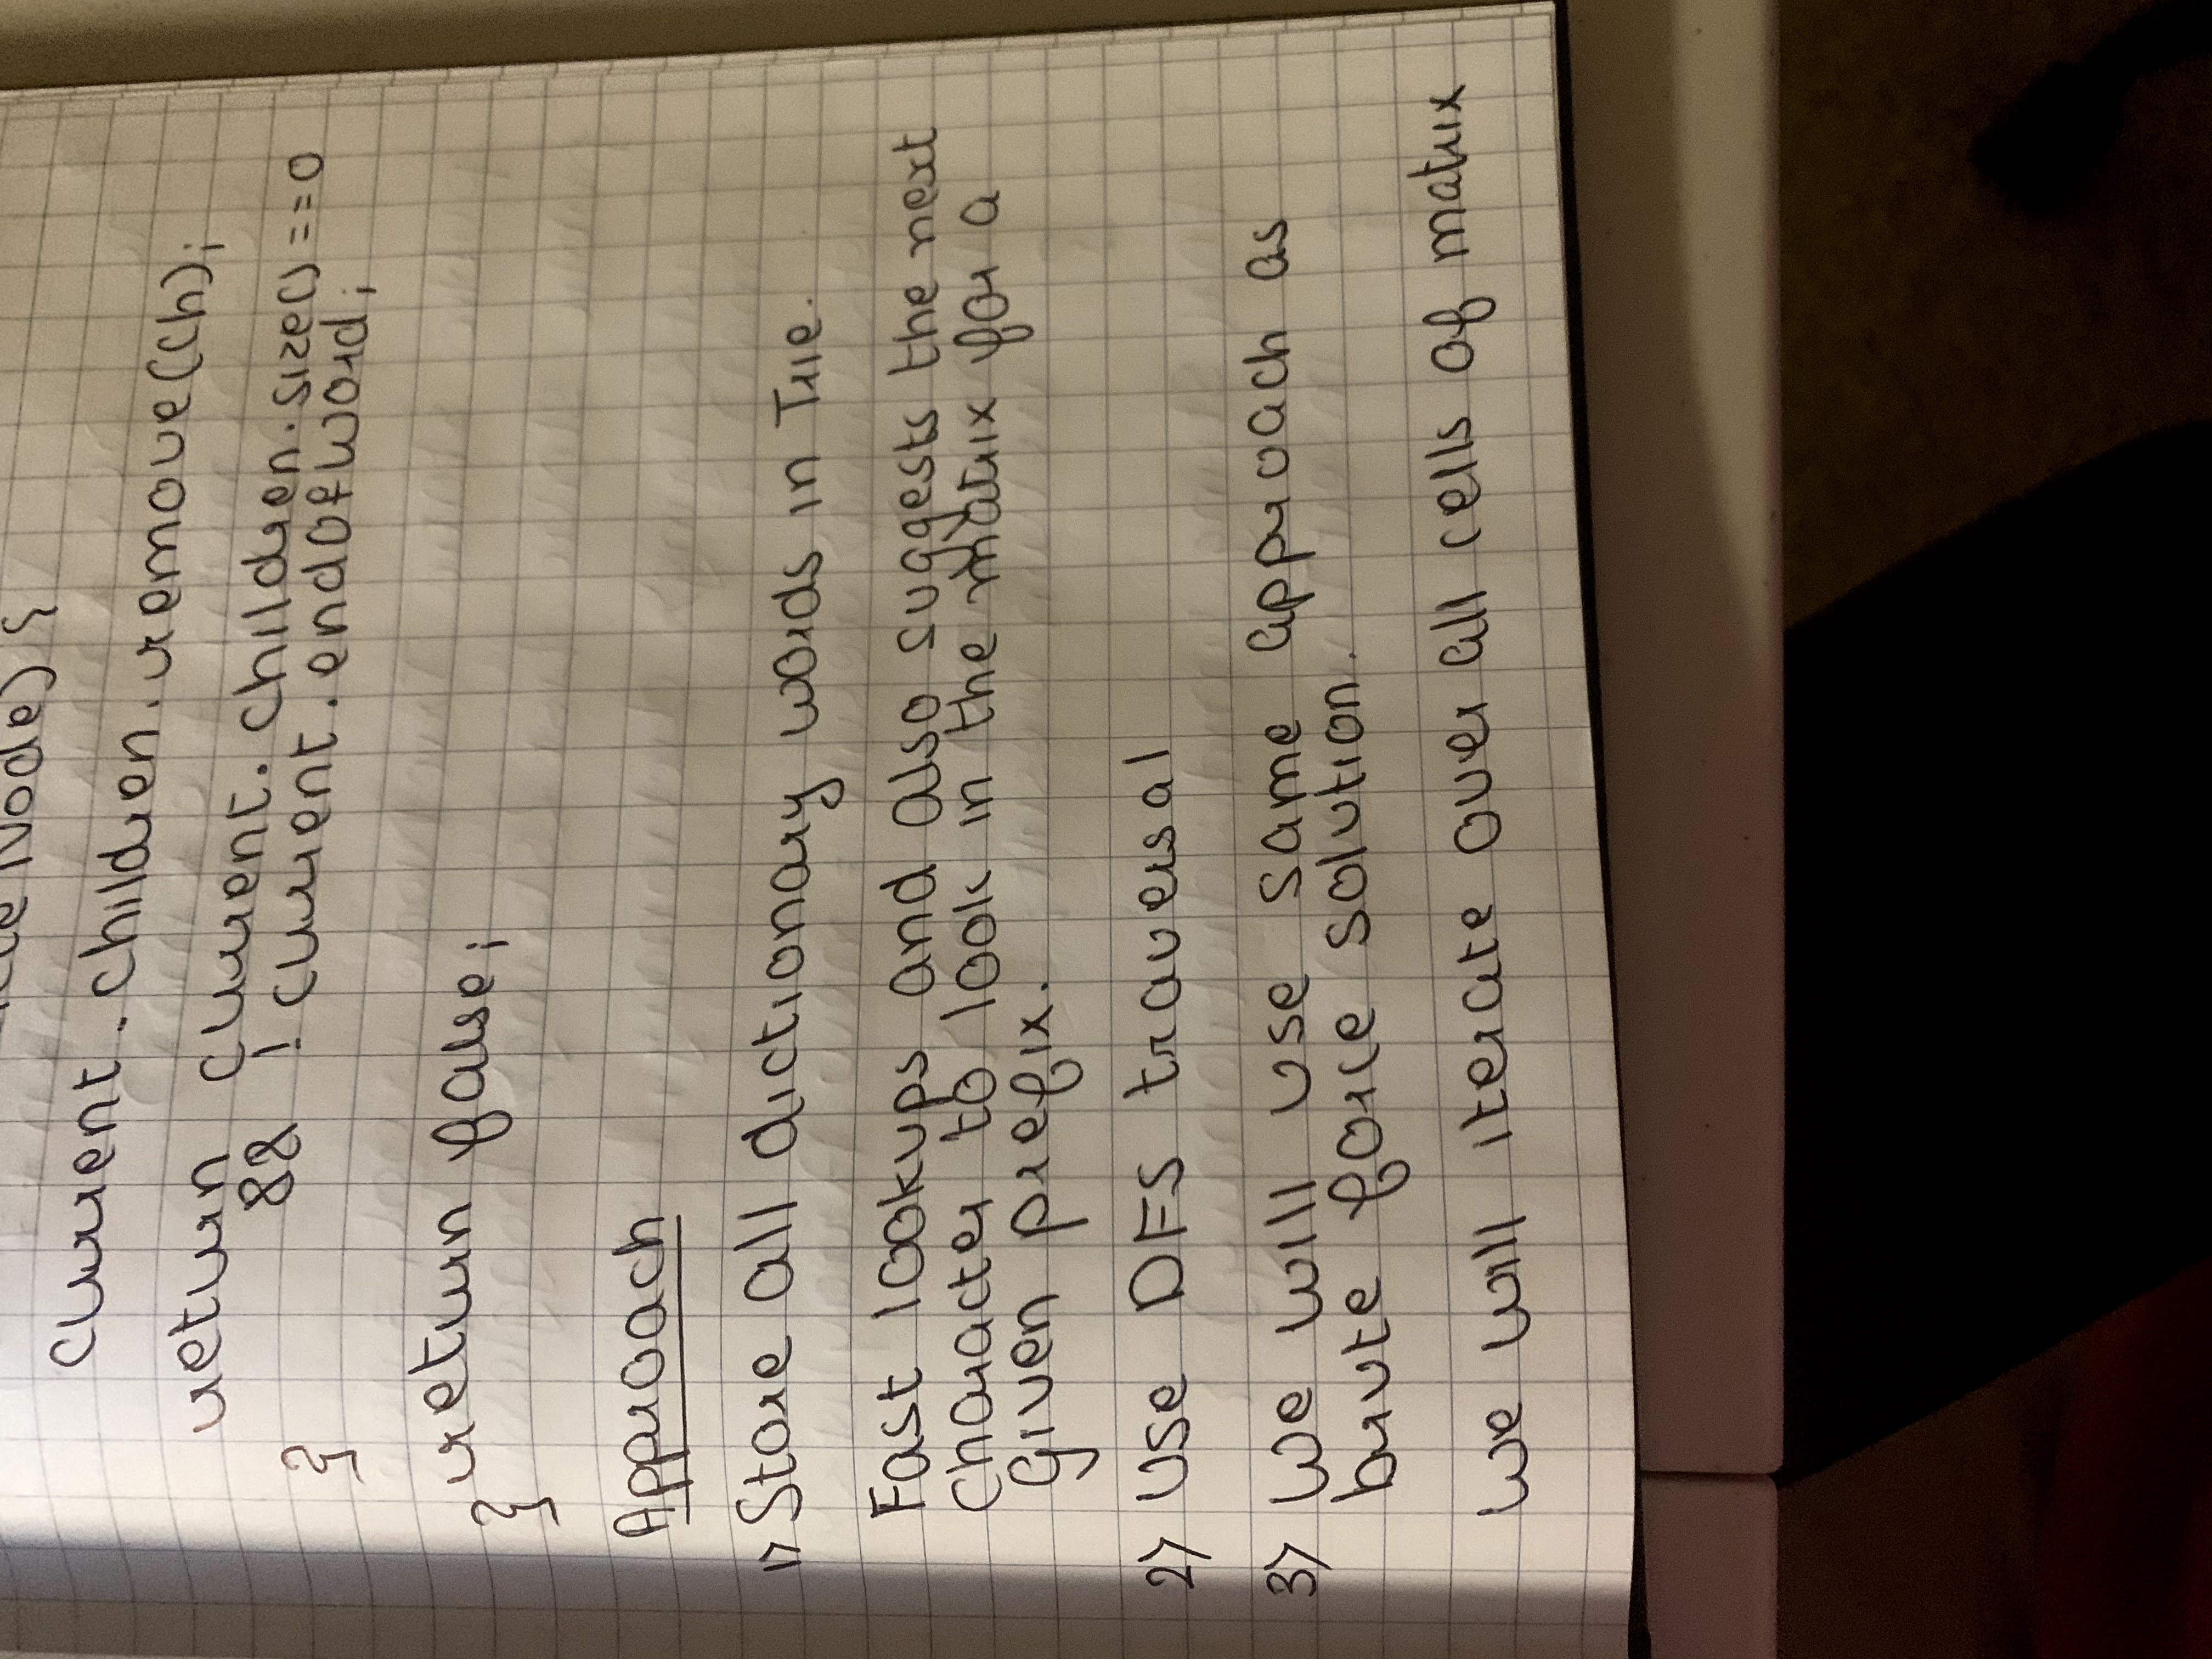 Node) {
current.children.remove(ch);
return current.children.size()==0
&& !current.endOfWord;
}
return false;
}
Approach
1) Store all dictionary words in Trie.
Fast lookups and also suggests the next
character to look in the matrix for a
given prefix.
2) Use DFS traversal
3) We will use same approach as
brute force solution.
We will iterate over all cells of matrix